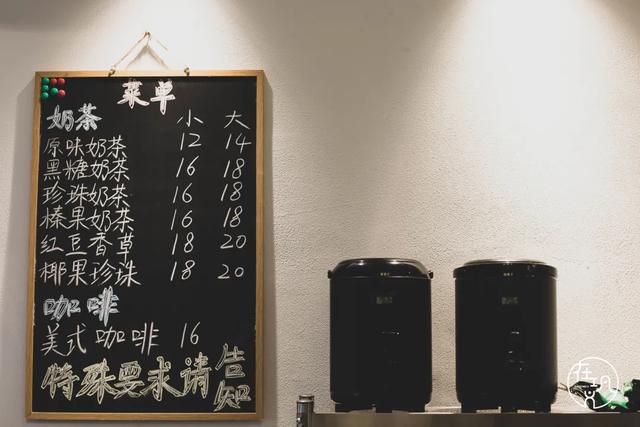 菜单
奶茶 小 大
原味奶茶 12 14
黑糖奶茶 16 18
珍珠奶茶 16 18
榛果奶茶 16 18
红豆香草 18 20
椰果珍珠 18 20
咖啡
美式咖啡 16
特殊要求请告知